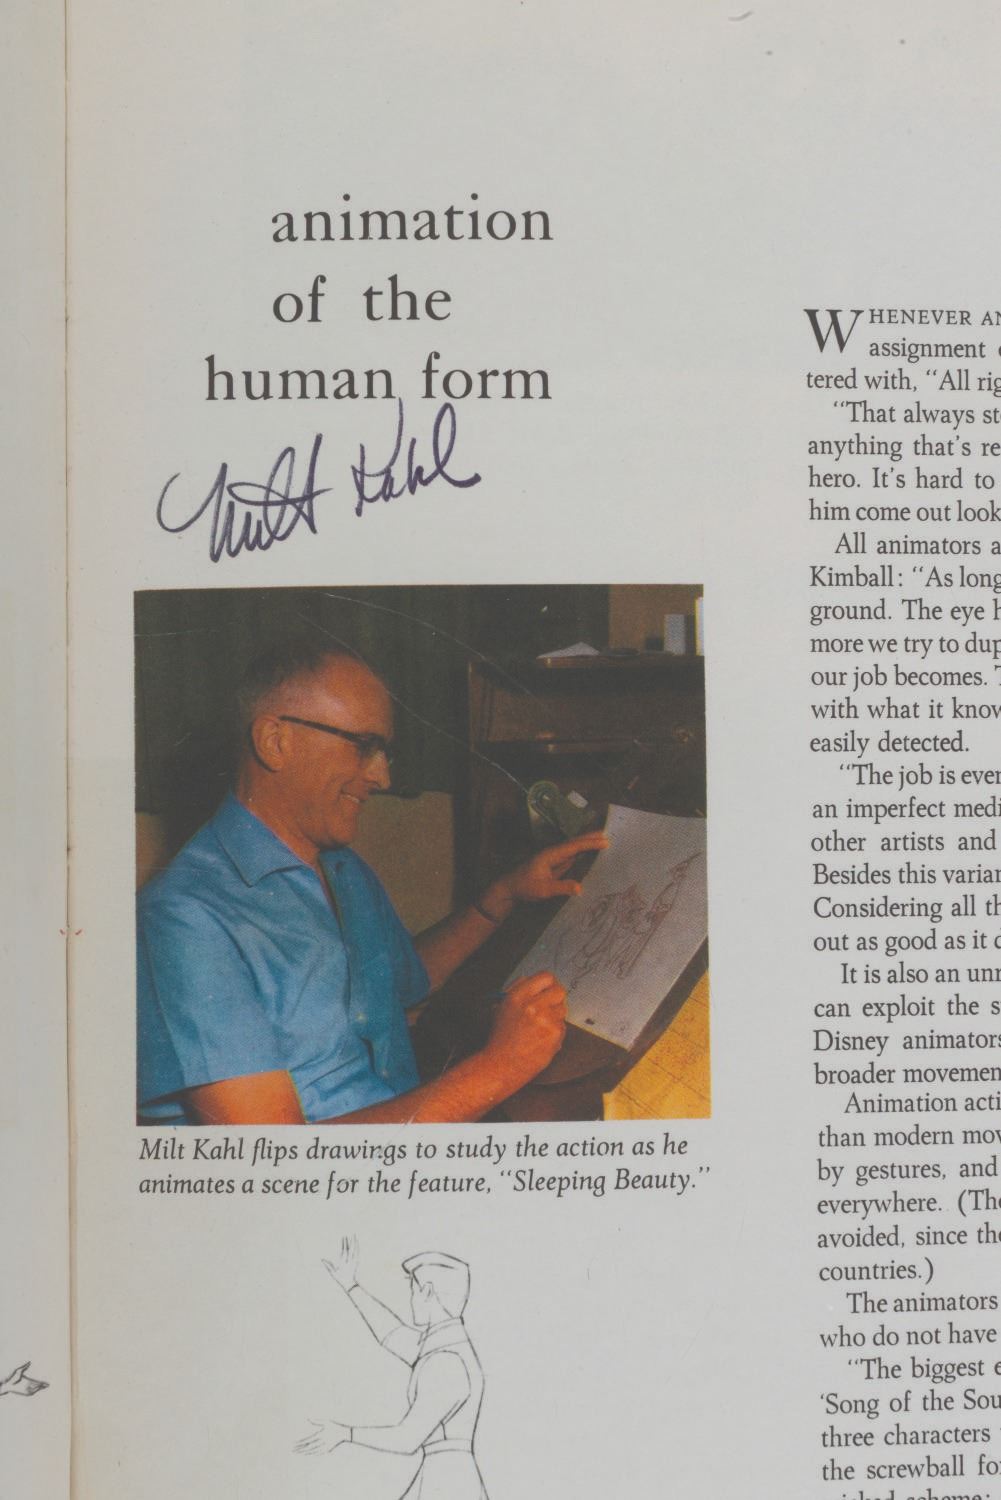 animation
of the
human form
Milt Kahl
Milt Kahl flips drawings to study the action as he
animates a scene for the feature, "Sleeping Beauty."
WHENEVER AN
assignment
tered with, "All
"That always
anything that's
hero. It's hard to
him come out
All animators
Kimball: "As long
ground. The eye
more we try to
our job becomes.
with what it
easily detected.
"The job is
an imperfect
other artists and
Besides this
Considering all
out as good as it
It is also an
can exploit the
Disney animators
broader
Animation
than modern
by gestures, and
everywhere. (The
avoided, since the
countries.)
The animators
who do not have
"The biggest
'Song of the
three characters
the screwball